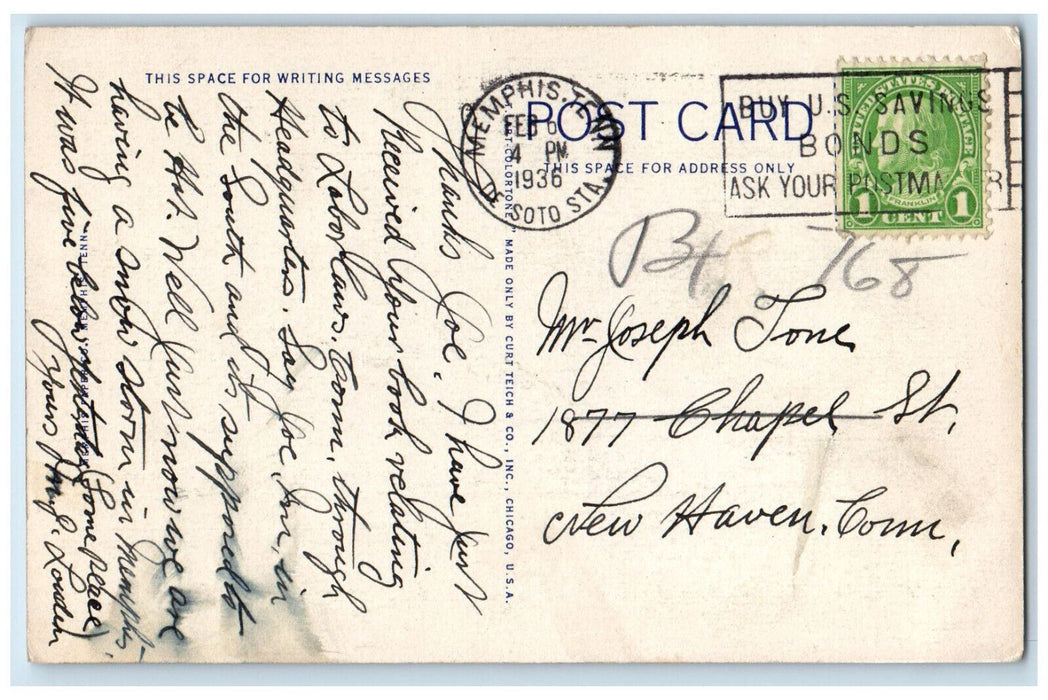 THIS SPACE FOR WRITING MESSAGES
Thanks Joe. I have just
Received your book relating
to Labor laws. Conn. through
Headquarters. Say Joe, I'm, in
the South and its supposed to
be Hot. Well Just now we are
having a snow storm in Memphis.
It was five below yesterday (Some place)
Yours J. Louden
MEMPHIS, TENN
"ART-COLORTONE" MADE ONLY BY CURT TEICH & CO., INC., CHICAGO, U.S.A.
POST CARD
THIS SPACE FOR ADDRESS ONLY
MEMPHIS, TENN
FEB 6
4 PM
1936
DE SOTO STA.
BUY U.S. SAVINGS
BONDS
ASK YOUR POSTMA R
UNITED STATES POSTAGE
FRANKLIN
1 CENT 1
768
Mr. Joseph Tone
1877 Chapel St.
New Haven. Conn.